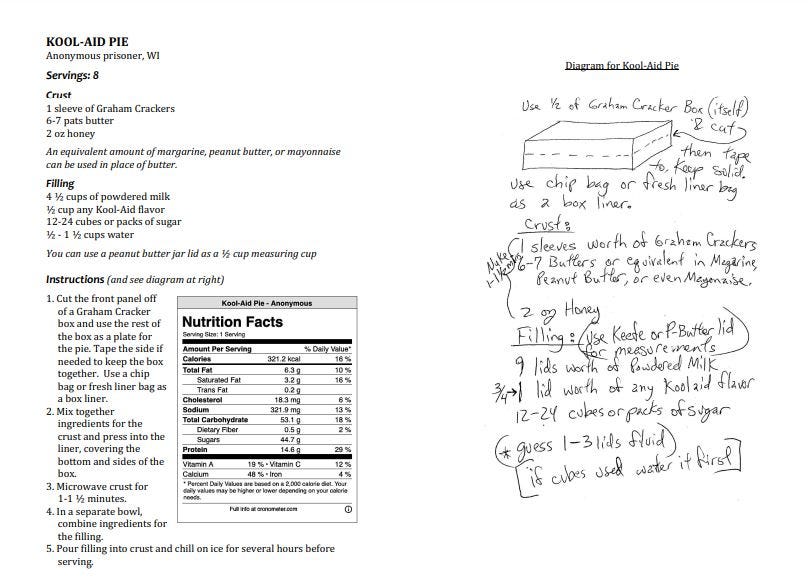 KOOL-AID PIE
Anonymous prisoner, WI
Servings: 8
Crust
1 sleeve of Graham Crackers
6-7 pats butter
2 oz honey
An equivalent amount of margarine, peanut butter, or mayonnaise
can be used in place of butter.
Filling
4 ½ cups of powdered milk
½ cup any Kool-Aid flavor
12-24 cubes or packs of sugar
½ - 1 ½ cups water
You can use a peanut butter jar lid as a ½ cup measuring cup
Instructions (and see diagram at right)
1. Cut the front panel off
of a Graham Cracker
box and use the rest of
the box as a plate for
the pie. Tape the side if
needed to keep the box
together. Use a chip
bag or fresh liner bag as
a box liner.
2. Mix together
ingredients for the
crust and press into the
liner, covering the
bottom and sides of the
box.
3. Microwave crust for
1-1 ½ minutes.
4. In a separate bowl,
combine ingredients for
the filling.
5. Pour filling into crust and chill on ice for several hours before
serving.
Kool-Aid Pie - Anonymous
Nutrition Facts
Serving Size: 1 Serving
Amount Per Serving % Daily Value*
Calories 321.2 kcal 16 %
Total Fat 6.3 g 10 %
Saturated Fat 3.2 g 16 %
Trans Fat 0.2 g
Cholesterol 18.3 mg 6 %
Sodium 321.9 mg 13 %
Total Carbohydrate 53.1 g 18 %
Dietary Fiber 0.5 g 2 %
Sugars 44.7 g
Protein 14.6 g 29 %
Vitamin A 19 % • Vitamin C 12 %
Calcium 48 % • Iron 4 %
* Percent Daily Values are based on a 2,000 calorie diet. Your
daily values may be higher or lower depending on your calorie
needs.
Full info at cronometer.com
Diagram for Kool-Aid Pie
Use ½ of Graham Cracker Box (itself)
& cut
then tape
to keep solid.
use chip bag or fresh liner bag
as a box liner.
Crust:
1 sleeves worth of Graham Crackers
6-7 Butters or equivalent in Magarine,
Peanut Butter, or even Mayonaise.
2 oz Honey
Filling: (use Keefe or P-Butter lid
for measurements)
9 lids worth of Powdered Milk
3/4→1 lid worth of any Koolaid flavor
12-24 cubes or packs of Sugar
(* guess 1-3 lids fluid)
[if cubes used water it first]